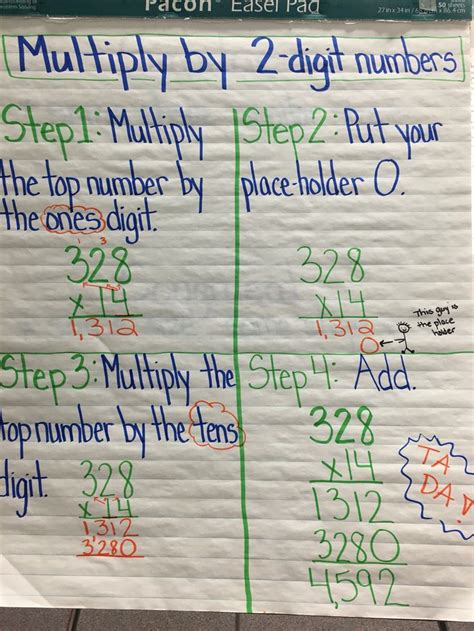 Pacon® Easel Pad
50 sheets
27 in x 34 in
Multiply by 2-digit numbers
Step 1: Multiply
the top number by
the ones digit.
1 3
328
x 14
1,312
Step 2: Put your
place-holder 0.
328
x 14
1,312
0
This guy is
the place
holder
Step 3: Multiply the
top number by the tens
digit.
328
x 14
1,312
3,280
Step 4: Add.
328
x 14
1312
3280
4,592
TA
DA!